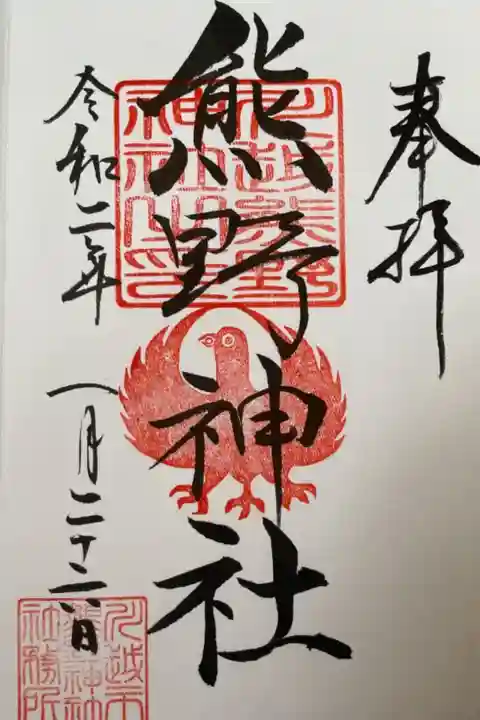 奉拝
川越熊野
神社之印
熊野神社
令和二年
一月二十二日
川越市
熊野神
社務所